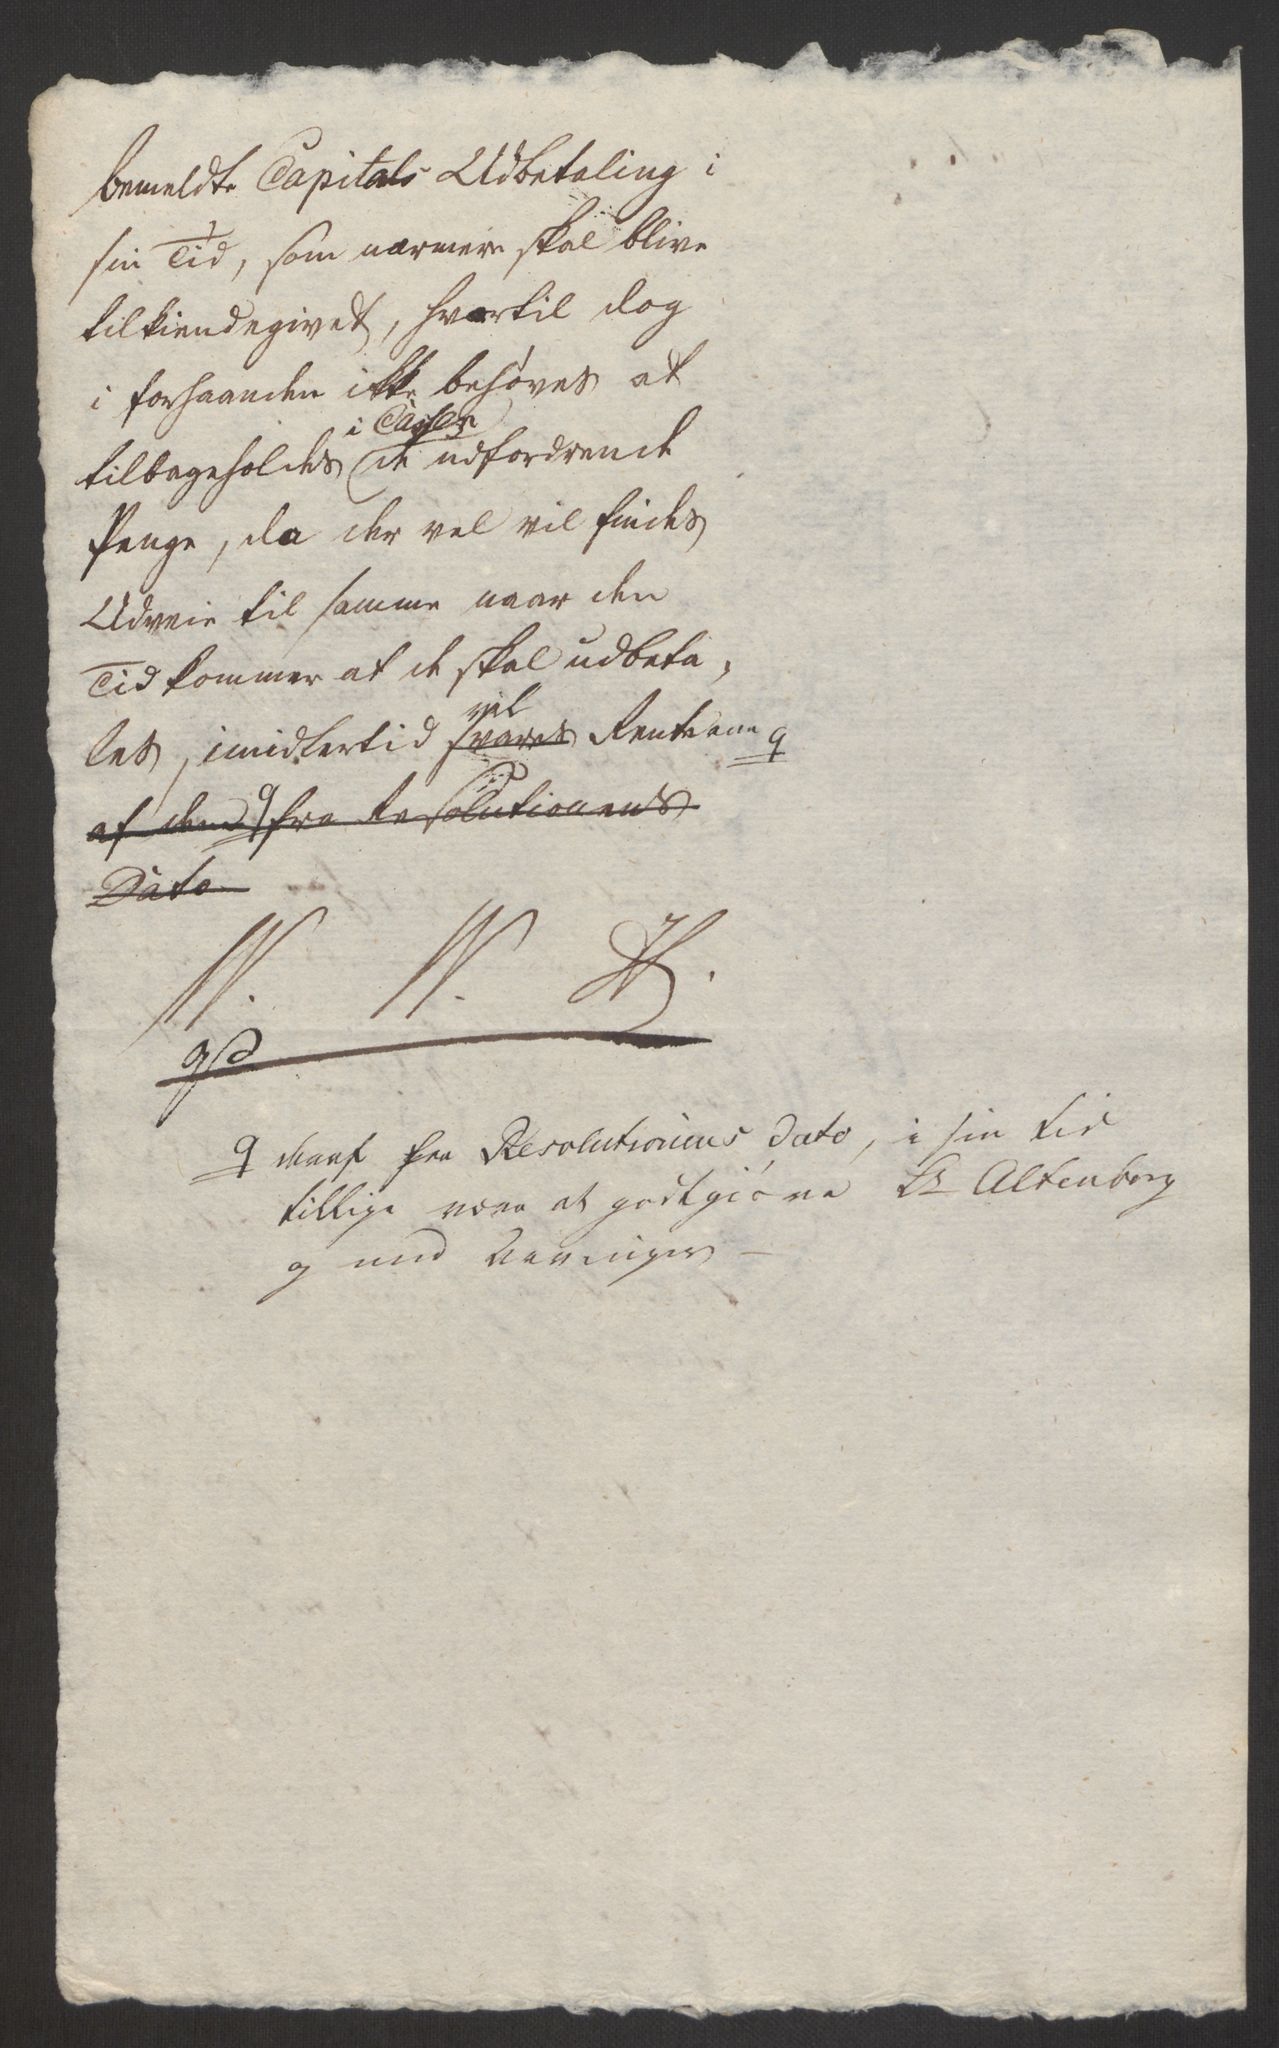 bemeldte Capitals Udbetaling i
sin Tid, som nærmere skal blive
tilkiendegivet, hvortil dog
i forhaanden ikke behøves at
i Casser
tilbageholdes de udfordrende
Penge, da der vel vil findes
Udveie til samme naar den
Tid kommer at de skal udbeta,
les, imidlertid svares Renterne
vil
af dem fra Resolutionens
Dato
N. N.
deraf fra Resolutionens Dato, i sin tid
tillige være at godtgiöre Altenborg
og med